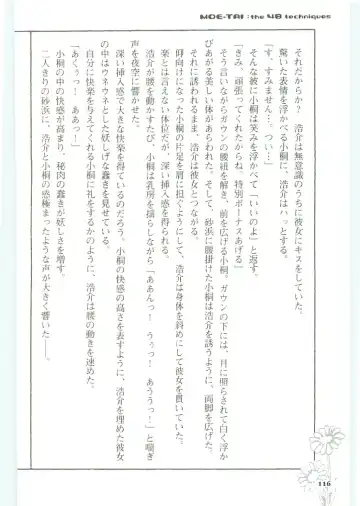 MOE-TAI : the 48 techniques
それだからか？　浩介は無意識のうちに彼女にキスをしていた。
驚いた表情を浮かべる小桐に、浩介はハッとする。
「す、すみません…。つい…」
そんな彼に小桐は笑みを浮かべて「いいのよ」と返す。
「きみ、頑張ってくれたからね。特別ボーナスあげる」
そう言いながらガウンの腰紐を解き、前を広げる小桐。ガウンの下には、月に照らされて白く浮か
びあがる美しい体があらわれた。そして、砂浜に腰掛けた小桐は浩介を誘うように、両脚を広げた。
それに誘われるまま、浩介は彼女とつながる。
仰向けになった小桐の片足を肩に担ぐようにして、浩介は身体を斜めにして彼女を貫いていた。
楽とは言えない体位だが、深い挿入感を得られる。
浩介が腰を動かすたび、小桐は乳房を揺らしながら「ああんっ！　うぅっ！　あううっ！」と喘ぎ
声を夜空に響かせた。
深い挿入感で大きな快楽を得ているのだろう、小桐の快感の高さを表すように、浩介を埋めた彼女
の中はウネウネとした妖しげな蠢きを見せている。
自分に快楽を与えてくれる小桐に礼をするかのように、浩介は腰の動きを速めた。
「あくぅっ！　ああっ！」
小桐の中の快感が高まり、秘肉の蠢きが妖しさを増す。
二人きりの砂浜に、浩介と小桐の感極まったような声が大きく響いた――。
116